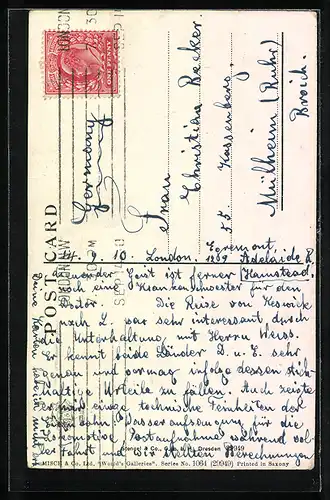 LONDON
SEP 1
ONE PENNY
POST CARD
Germany
Frau
Christian Becker
55 Kassenberg.
Mülheim (Ruhr)
Broich.
14. 9. 10. London. Egremont,
129 Adelaide R.
Geist ist ferner Hampstead.
noch eine Krankenschwester für den
Die Reise von Keswick
nach L. war sehr interessant durch
die Unterhaltung mit Herrn Weiss.
Er kennt beide Länder D. u. E. sehr
genau und vermag infolge dessen stich-
haltige Urteile zu fällen. Auch zeigte
er mir einige technische Feinheiten der
Bahn, Wasseraufsaugung für die
Lokomotive, Postaufnahme während voller
Fahrt und
& Co., Ltd., "World's Galleries". Series No. 1061 (29949) Printed in Saxony